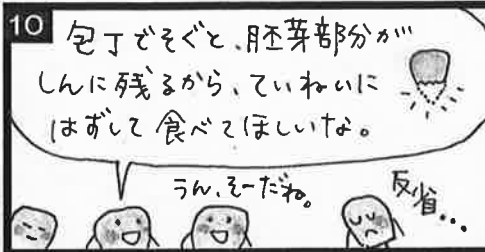 10
包丁でそぐと、胚芽部分が
しんに残るから、ていねいに
はずして食べてほしいな。
うん、そーだね。
反省...